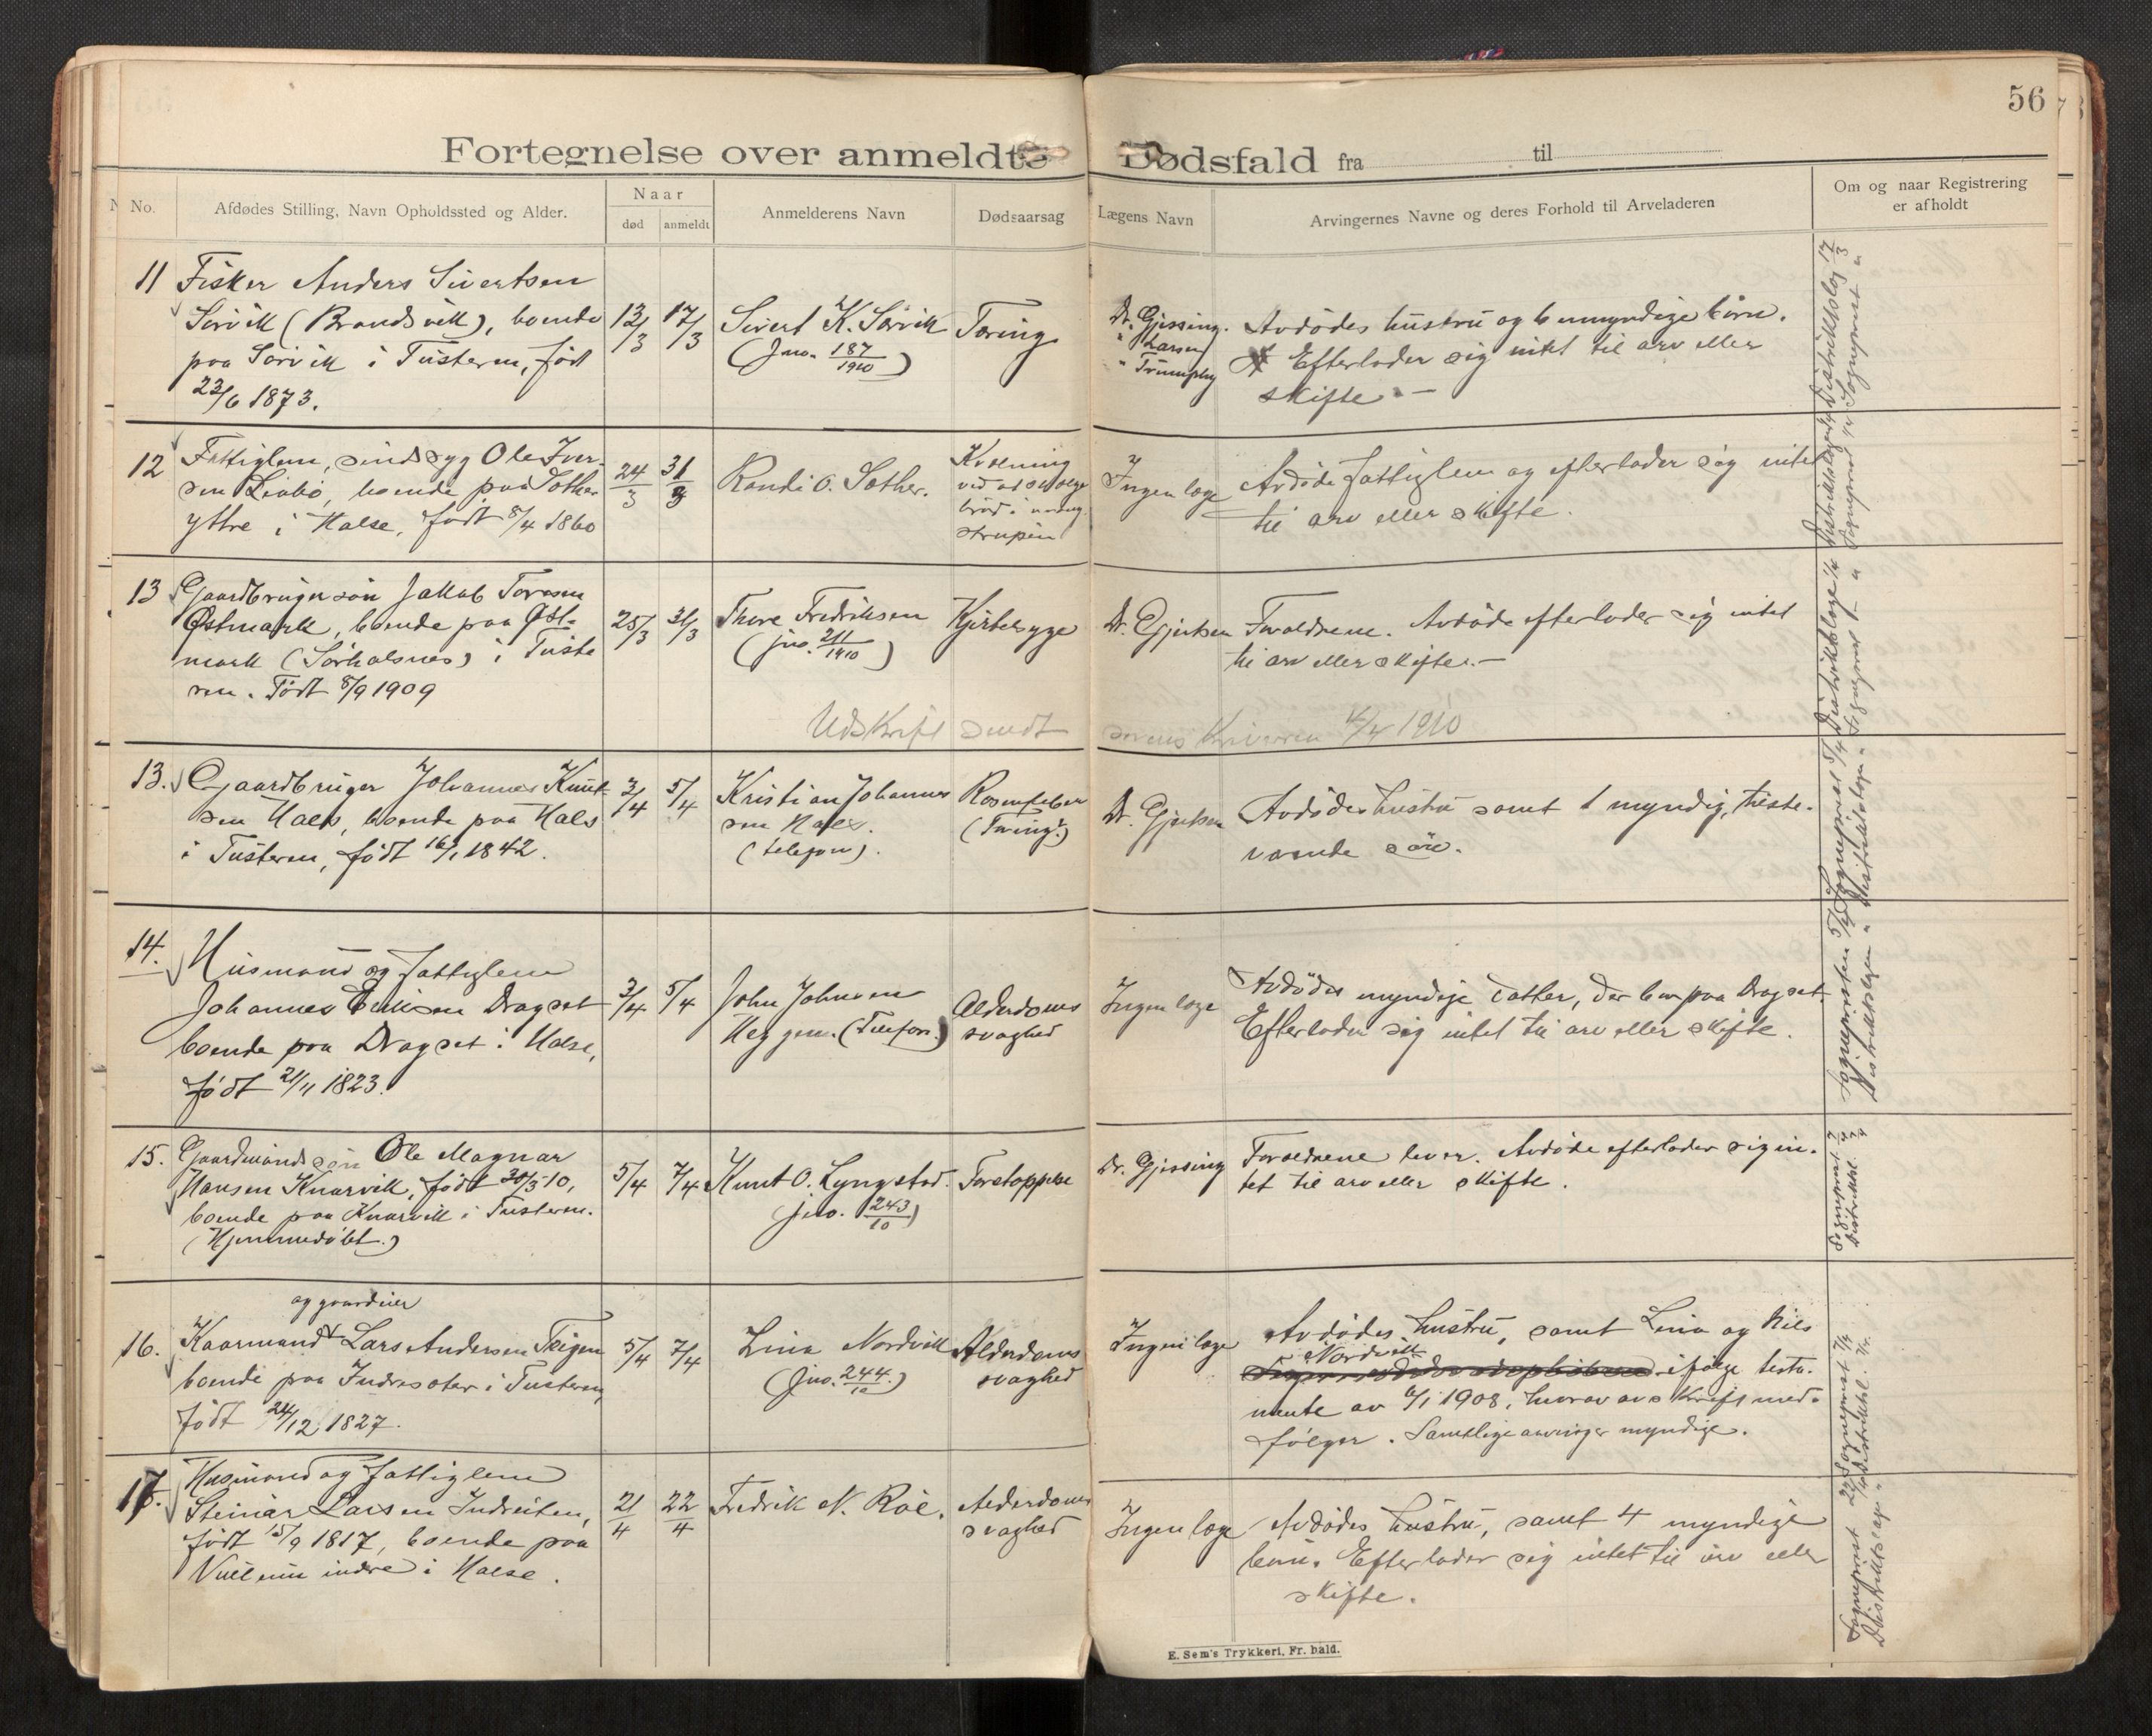 56
Fortegnelse over anmeldte Dødsfald fra til
No.
Afdødes Stilling, Navn Opholdssted og Alder.
Naar
død
anmeldt
Anmelderens Navn
Dødsaarsag
Lægens Navn
Arvingernes Navne og deres Forhold til Arveladeren
Om og naar Registrering
er afholdt
11 Fisker Anders Sivertsen
Sørvik (Brandsvik), boende
paa Sørvik i Tusteren, født
23/6 1873.
13/3
17/3
Sivert K. Sørvik
(Jno. 187/1910)
Tæring
Dr. Gjessing.
" Larsen
" Trumphy
Avdødes hustru og 6 umyndige børn.
Efterlader sig intet til arv eller
skifte. —
12 Fattiglem, sindssyg Ole Iver-
sen Liabø, boende paa Sæther
ytre i Halse, født 8/4 1860
24/3
31/3
Randi O. Sæther.
Kvælning
ved at svælge
brød i
strupen
Ingen læge
Avdøde fattiglem og efterlader sig intet
til arv eller skifte.
13 Gaardbrugersøn Jakob Toresen
Østmark, boende paa Øst-
mark (Sørhalsnes) i Tuste
ren. Født 8/9 1909
28/3
31/3
Thore Fredriksen
(jno. 211/1910)
Kjertelsyge
Dr. Gjertsen
Forældrene. Avdøde efterlader sig intet
til arv eller skifte. —
Udskrift sendt sorenskriveren 4/4 1910
13. Gaardbruger Johannes Knut-
sen Hals, boende paa Hals
i Tusteren, født 16/1 1842.
3/4
5/4
Kristian Johannes
sen Hals.
(telefon).
Rosenfeber
(Tæring?)
Dr. Gjertsen
Avdødes hustru samt 1 myndig, tilste-
værende søn.
14. Husmand og fattiglem
Johannes Eriksen Dragset
boende paa Dragset i Halse,
født 21/11 1823.
3/4
5/4
John Johnsen
Heggem. (Telefon.)
Alderdoms
svaghed
Ingen læge
Avdødes myndige datter, der bor paa Dragset.
Efterlader sig intet til arv eller skifte.
15. Gaardmandssøn Ole Magnar
Hansen Knarvik, født 30/3 10,
boende paa Knarvik i Tusteren.
(Hjemmedøbt.)
5/4
7/4
Knut O. Lyngstad.
(jno. 243/10)
Forstoppelse
Dr. Gjessing
Forældrene lever. Avdøde efterlader sig in-
tet til arv eller skifte.
og gaardeier
16. Kaarmand Lars Andersen Teigen
boende paa Indresæter i Tusteren,
født 24/12 1827.
5/4
7/4
Lina Nordvik
(Jno. 244/10)
Alderdoms
svaghed
Ingen læge
Avdødes hustru, samt Lina og Nils
Nordvik
ifølge testa-
mente av 1908, hvorav avskrift med-
følger. Samtlige arvinger myndige.
17. Husmand og fattiglem
Steinar Larsen Indreiten,
født 15/9 1817, boende paa
Vullum indre i Halse.
21/4
22/4
Fredrik N. Røe.
Alderdoms
svaghed
Ingen læge
Avdødes hustru, samt 4 myndige
børn. Efterlader sig intet til arv eller
skifte.
E. Sem's Trykkeri, Fr. hald.